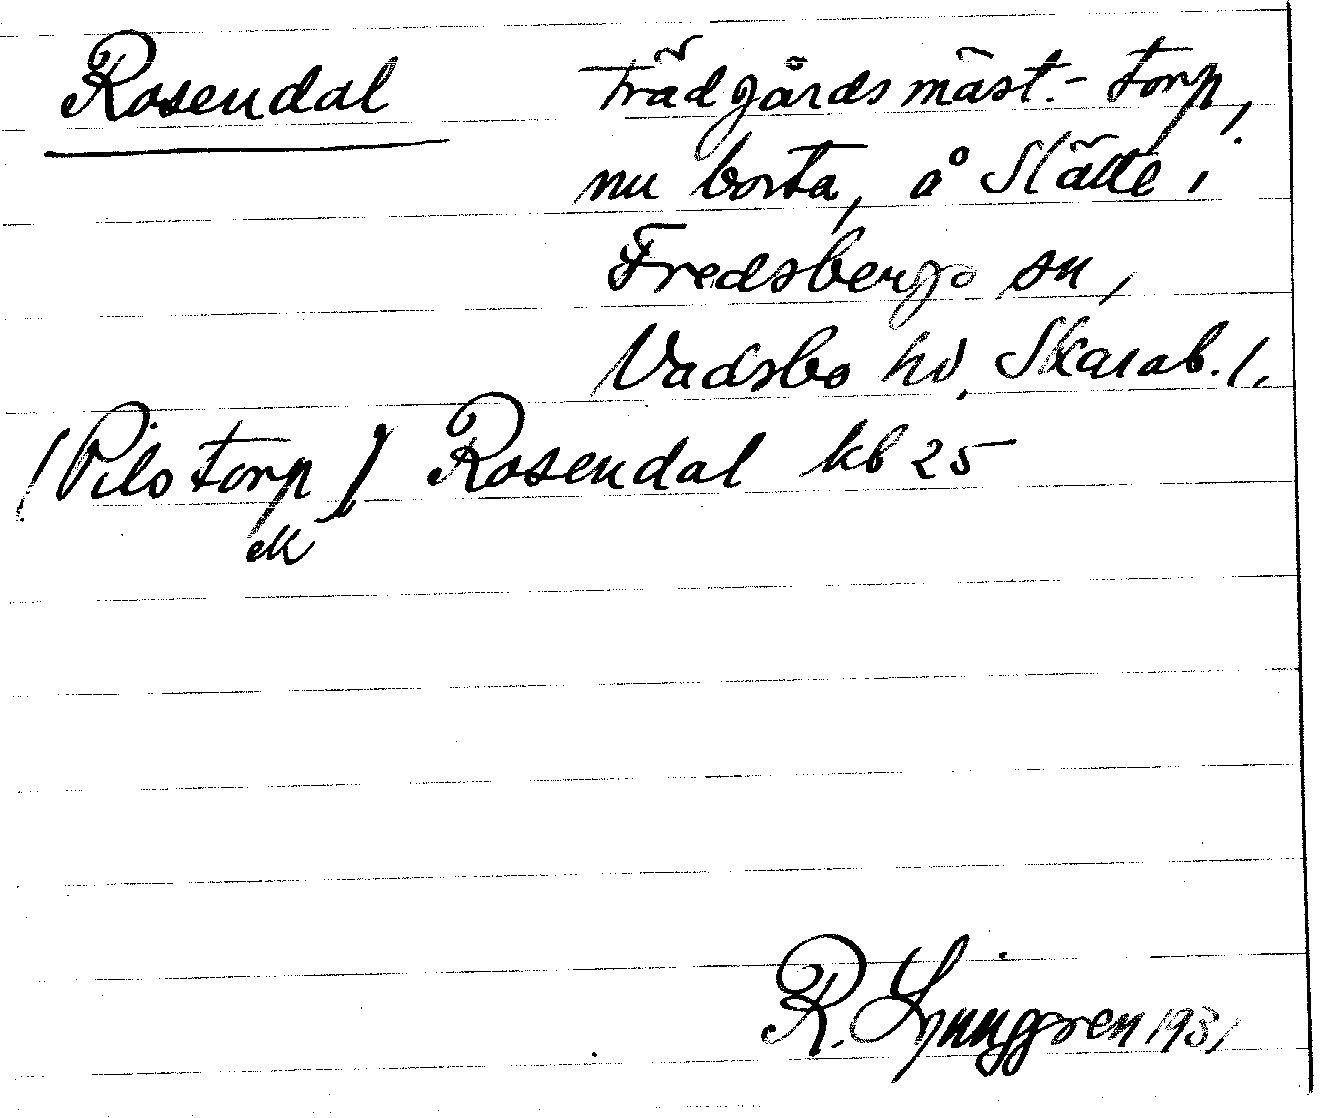 Rosendal Trädgårdsmäst.-torp,
nu borta, å Slätte i
Fredsbergs sn,
Vadsbo hd, Skarab. l.
(Pilstorp) Rosendal kb 25
ek
R. Ljunggren 1931